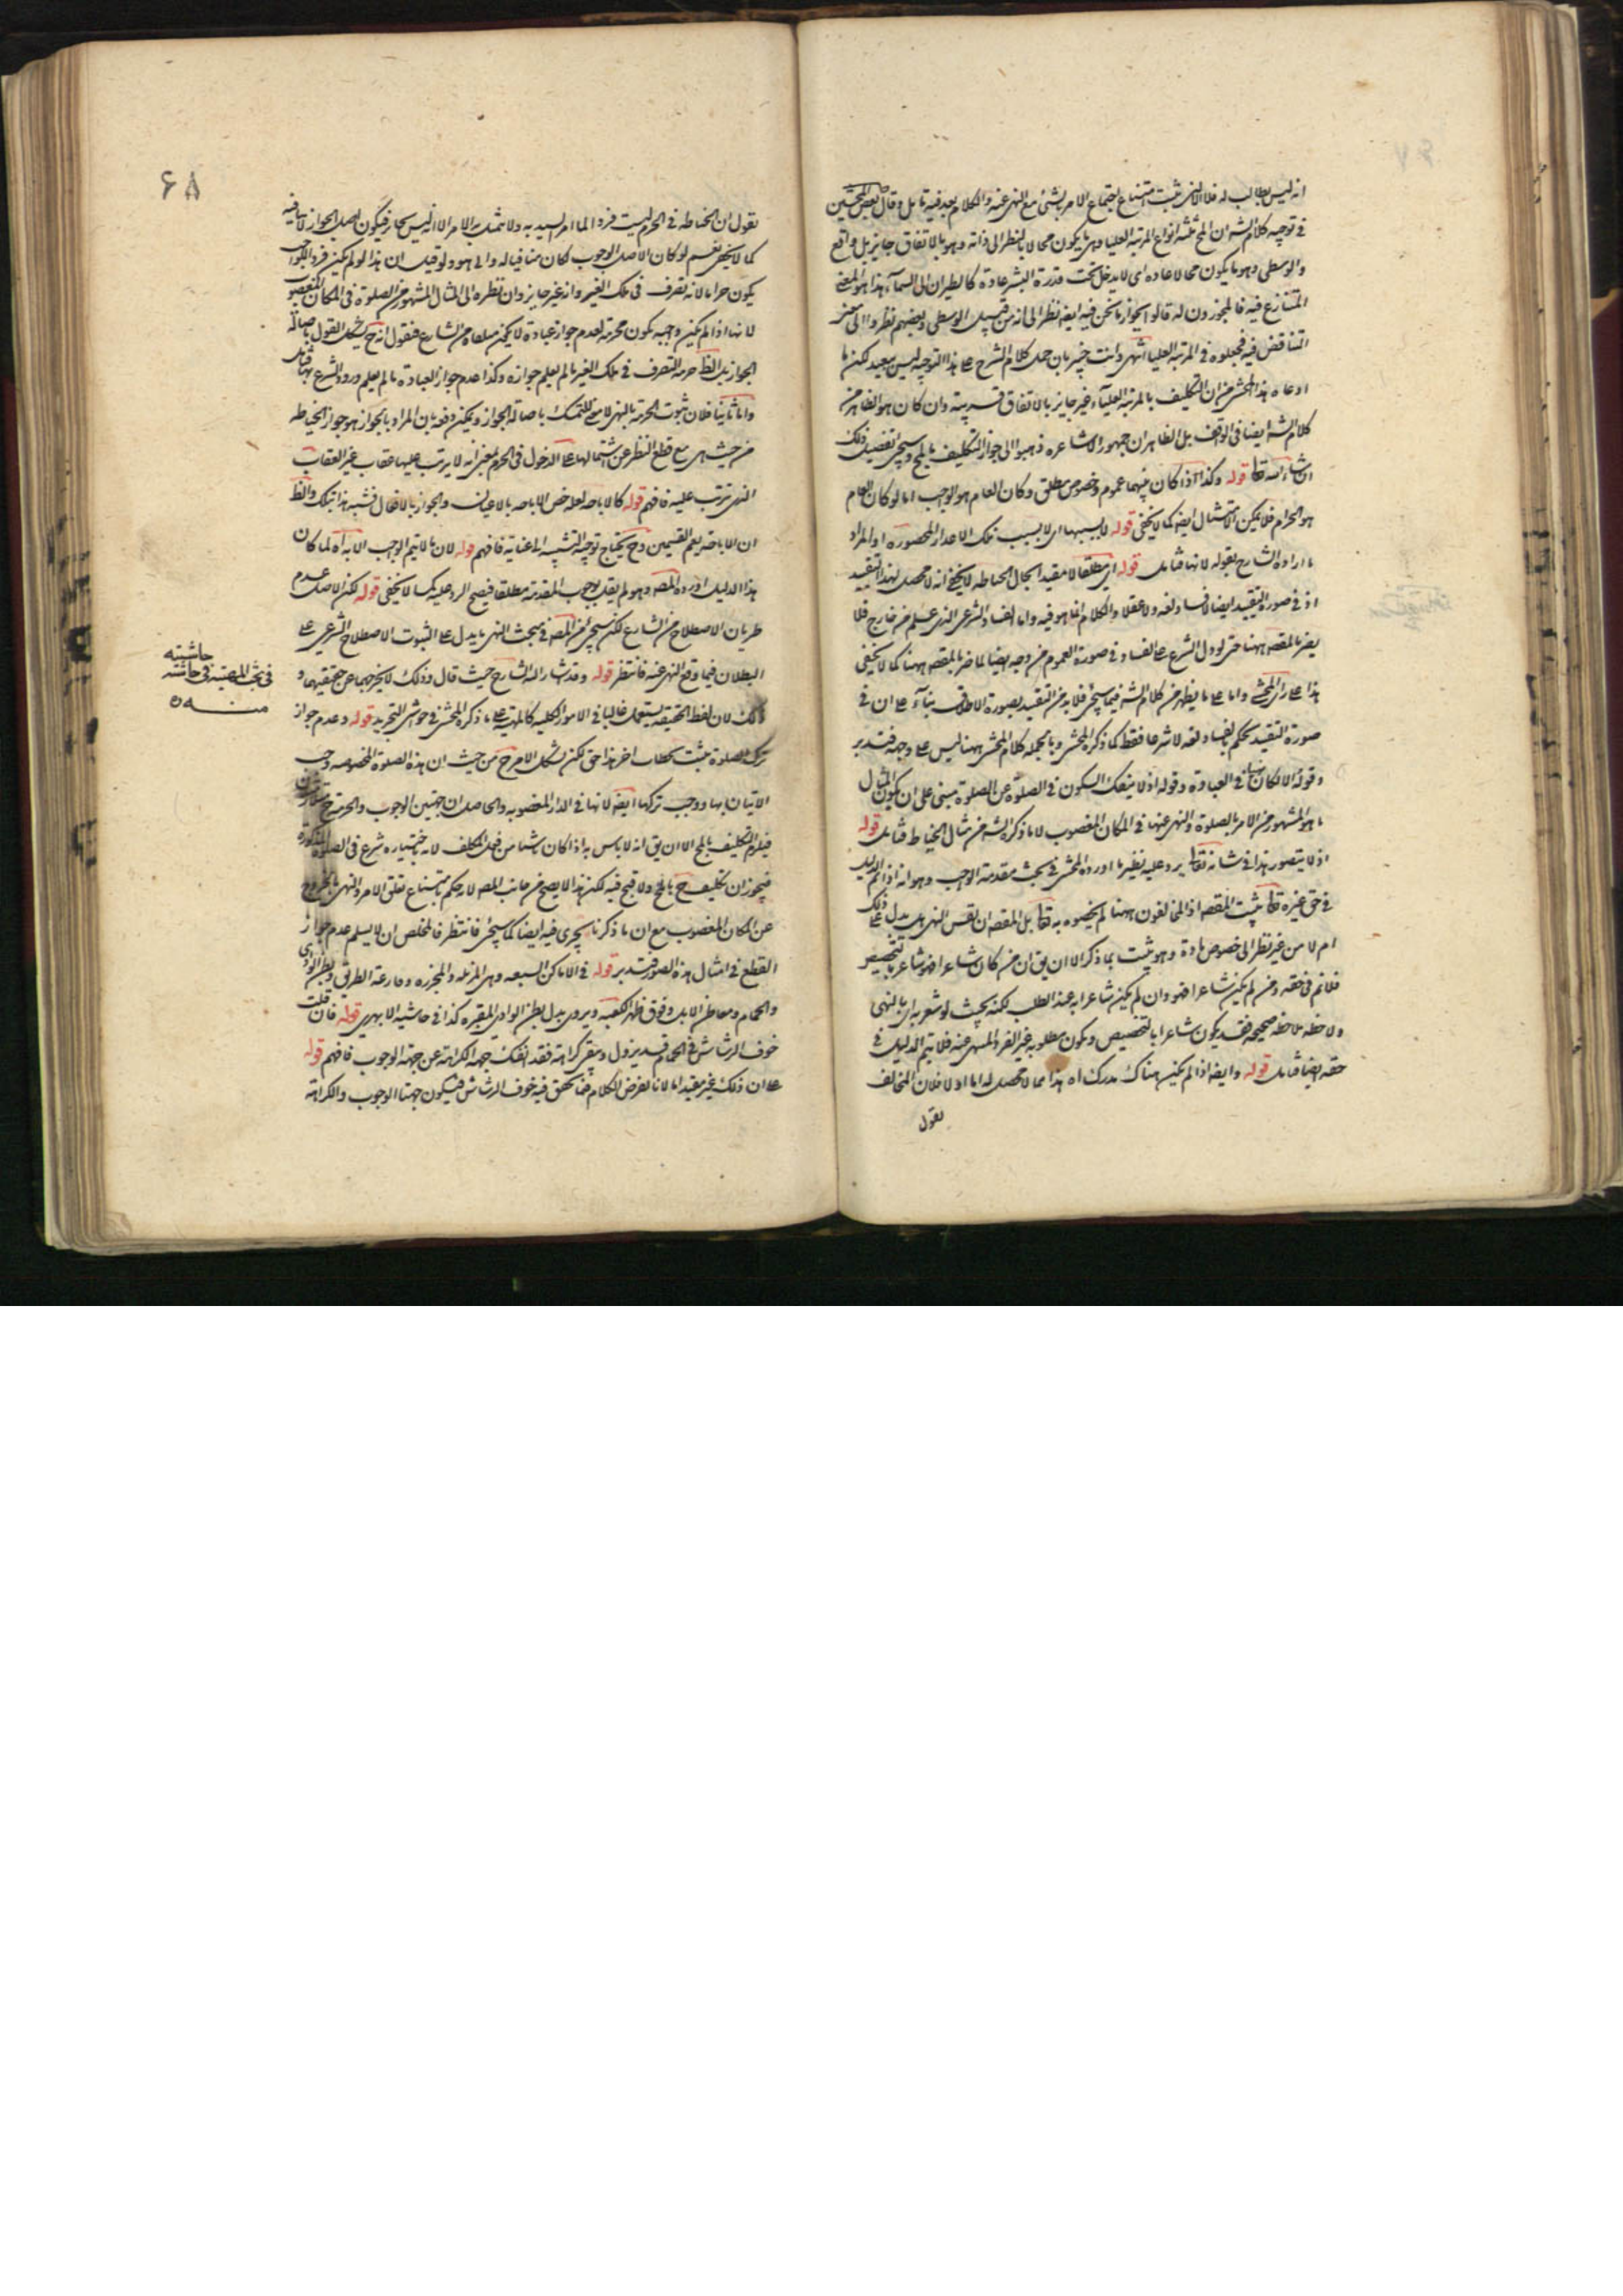 انه ليس بطالب له فلا لانه يثبت امتناع اجتماع الامر بشئ مع النهى عنه والكلام بعد فيه تامل وقال بعض المحشين
فى توجيه كلام الشه ان المح ثلثه انواع المرتبة العليا وهى ما يكون محالا بالنظر الى ذاته وهو بالاتفاق جايز بل واقع
والوسطى وهو ما يكون محالا عادة اى لا يدخل تحت قدرة البشر عادة كالطيران الى السماء هذا هو المعنى
المتنازع فيه فالمجوزون له قالوا بجواز ما نحن فيه ايضه نظرا الى انه من قبيل الوسطى وبعضهم نظروا الى معنى
التناقض فيه فجعلوه فى المرتبة العليا انتهى وانت خبير بان حمل كلام الشرح ع هذا التوجيه ليس ببعيد لكن ما
ادعاه هذا المحشى من ان التكليف بالمرتبة العلياء غير جايز بالاتفاق فريبة وان كان هو الظاهر من
كلام الشه ايضا فى الموقف بل الظاهر ان جمهور الاشاعره ذهبوا الى جواز التكليف بالمح وسيجئ تفصيل ذلك
انشاء الله تعا قوله وكذا اذا كان بينهما عموم وخصوص مطلق وكان العام هو الوجب اما لو كان العام
هو الحرام فلا يمكن الامتثال ايضه كما لا يخفى قوله لا بسببها اى لا بسبب تلك الاعذار المحصوره او المراد
ما اراده الشارح بقوله لانها فتامل قوله اى مطلقا لا مقيد ابحال الخياطه لا يخفى انه لا محصل لهذا التقييد
اذ فى صورة التقييد ايضا لا فساد لغه ولا عقلا والكلام انما هو فيه واما الفساد الشرعى الذى علم من خارج فلا
يضر بالمقصه ههنا حتى لو دل الشرع ع الفساد فى صورة العموم من وجه ايضا لما ضر بالمقصه ههنا كما لا يخفى
هذا ع راى المحشى واما ع ما يظهر من كلام الشه فيما سيجئ فلا بد من التقييد بصورة الاطلاق بناء ع ان فى
صورة التقييد يحكم بالفساد لغه لا شرعا فقط كما ذكره المحشى وبالجمله كلام المحشى ههنا ليس ع وجهه فتدبر
وقوله الا لكان نهيا فى العبادة وقوله اذ لا ينفك السكون فى الصلوة عن الصلوة مبنى على ان يكون المثال
ما هو المشهور من الامر بالصلوة والنهى عنها فى المكان المغصوب لا ما ذكره الشه من مثال الخياط فتامل قوله
اذ لا يتصور هذا فى شانه تعا يرد عليه نظير ما اورده المحشى فى بحث مقدمة الوجب وهو انه اذا لم الدليل
فى حق غيره تعا يثبت المقصه اذ المخالفون ههنا لم يخصوه به تعا بل المقصه ان نفس النهى هل يدل ع ذلك
ام لا من غير نظر الى خصوص مادة وهو يثبت بما ذكر الا ان يق ان من كان شاعرا فهو شاعر بالتخصيص
فلا تم فى حقه ومن لم يكن شاعرا فهو وان لم يكن شاعرا به عند الطلب لكنه بحيث لو شعر به اى بالنهى
ولاحظه ملاحظه صحيحه فقد يكون شاعرا بالتخصيص ويكون مطلوبه غير الفرد المنهى عنه فلا يتم الدليل فى
حقه ايضا فتامل قوله وايضه اذا لم يكن هناك مدرك اه هذا مما لا محصل له اما اولا فلان المخالف
يقول
۶۸
يقول ان الخياطه فى الحرم ليست فردا لما امر السيد به ولا تمثيل بالامر الا انه ليس بحار فيكون اصل الجواز لا ينافيه
كما لا يخفى نعم لو كان الاصل الوجوب لكان منافيا له وانى هو ولو قيل ان هذا لو لم يكن فردا للواجب
يكون حراما لانه تصرف فى ملك الغير وانه غير جايز وان نظره الى المثال المشهور من الصلوة فى المكان المغصوب
لانها اذا لم يكن وجبه يكون محرمة لعدم جواز عبادة لا يكون متلقاة من الشارع فنقول انه ح يشكل القول باصالة
الجواز بل الظ حرمه التصرف فى ملك الغير ما لم يعلم جوازه وكذا عدم جواز العبادة ما لم يعلم ورود الشرع بها فتامل
واما ثانيا فلان ثبوت الحرمة بالنهى لا مع للتمسك باصالة الجواز ويمكن دفعه بان المراد بالجواز هو جواز الخياطه
من حيث هى مع قطع النظر عن اشتمالها ع الدخول فى الحرم بمعنى انه لا يرتب عليها عقاب غير العقاب
الذى ترتب عليه فافهم قوله كالاباحه لعله خص الاباحه بالاعيان والجواز بالافعال فشبه هذا بتلك والظ
ان الاباحة يعم القسمين وح يحتاج توجيه التشبيه الى عناية فافهم قوله لان ما لا يتم الوجب الا به اه لما كان
هذا الدليل اورده المصه وهو لم يقل بوجوب المقدمة مطلقا فيصح الرد عليه كما لا يخفى قوله لكن الاصل عدم
طريان الاصطلاح من الشارع لكن سيجئ من المصه فى مبحث النهى ما يدل ع الثبوت الاصطلاح الشرعى ع
البطلان فيما وقع النهى عنه فانتظر قوله وقد اشار اليه الشارح حيث قال وذلك لا يخرجهما عن حقيقتهما و
ذلك لان لفظ الحقيقه يستعمل غالبا فى الامور الكليه كالمهية ع ما ذكره المحشى فى حواشى التجريد قوله وعدم جواز
ترك الصلوة يثبت بخطاب اخر هذا حق لكن يشكل الامر ح من حيث ان هذه الصلوة المخصوصه وجب
الاتيان بها ووجب تركها ايضه لانها فى الدار المغصوبه والحاصل ان جهتين الوجوب والحرمة ح متلازمتان
فيلزم التكليف بالمح الا ان يق انه لا باس به اذا كان ناشيا من فعل المكلف لانه باختياره شرع فى الصلوة المذكورة
فيجوز ان تكليف ح بالمح ولا قبح فيه لكن هذا لا يصح من جانب المصه لانه حكم بامتناع تعلق الامر والنهى بالخروج
عن المكان المغصوب مع ان ما ذكرنا يجرى فيه ايضا كما سيجئ فانتظر فالمخلص ان لا يسلم عدم جواز
القطع فى امثال هذه الصور فتدبر قوله فى الاماكن السبعه وهى المزبله والمجزره وقارعة الطريق وبطن الوادى
والحمام ومعاطن الابل وفوق ظهر الكعبه ويروى بدل بطن الوادى المقبره كذا فى حاشيه الابهرى قوله فان قلت
خوف الرشاش فى الحمام قد يزول ويبقى كراهة فقد انفك جهه الكراهة عن جهة الوجوب فافهم قوله
ع ان ذلك غير مقيد اما لانا نفرض الكلام فيما تحقق فيه خوف الرشاش فيكون جهتا الوجوب والكراهة
حاشيته